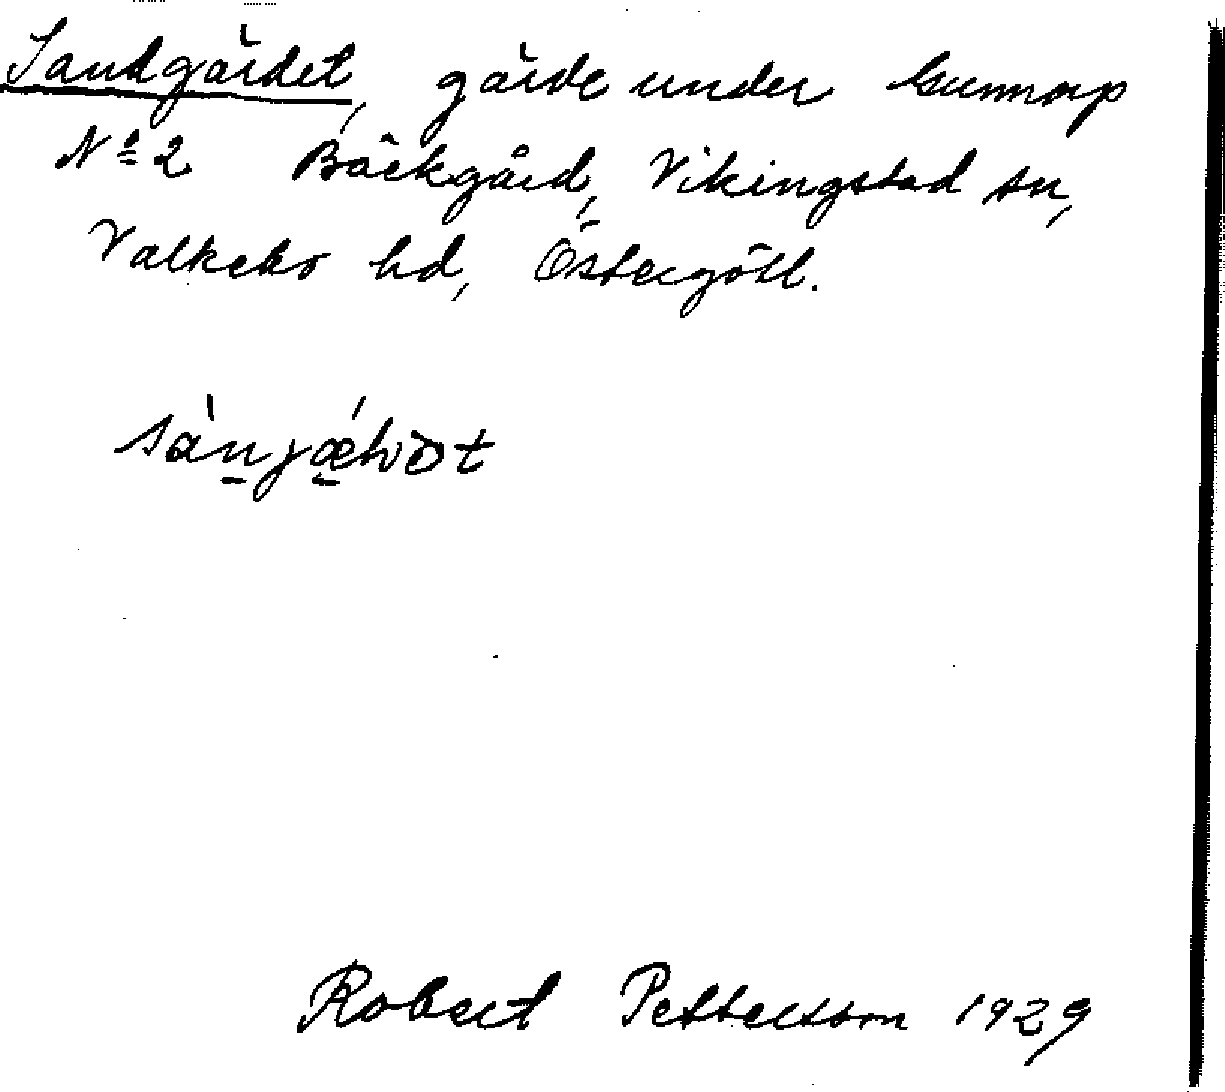 Sandgärdet, gärde under Gunnorp
Nº 2 Bäckgård, Vikingstad sn,
Valkebo hd, Östergötl.
Robert Pettersson 1929